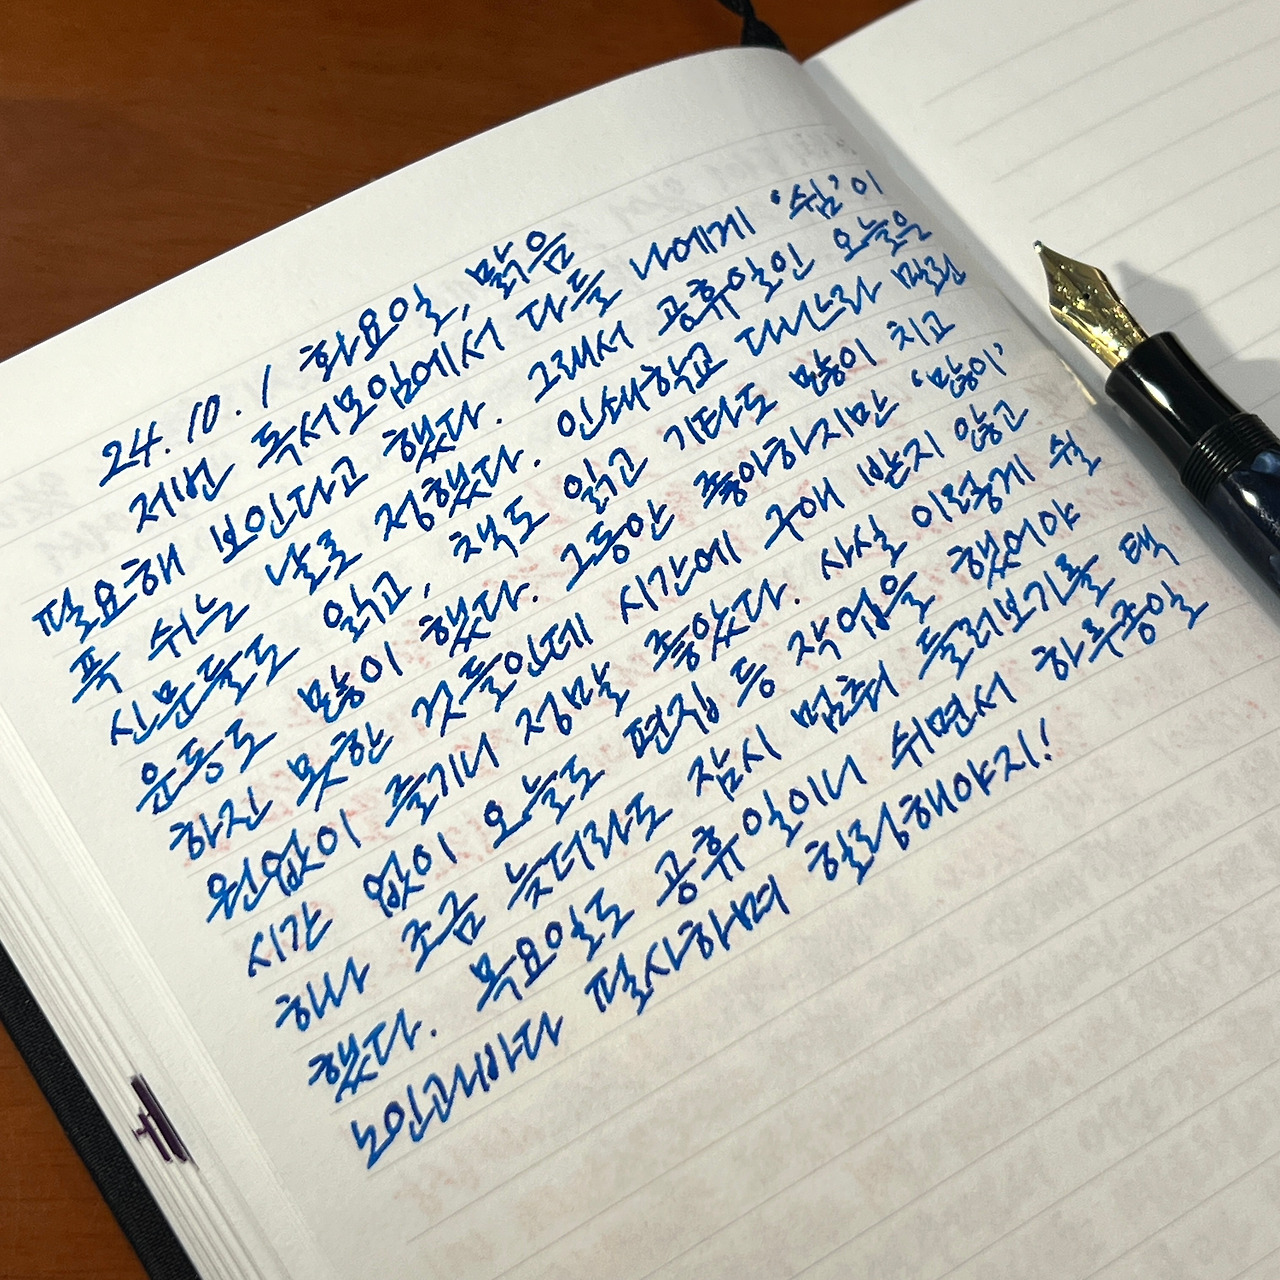 24. 10. 1 화요일, 맑음
저번 독서모임에서 다들 나에게 '쉼'이
필요해 보인다고 했다. 그래서 공휴일인 오늘을
푹 쉬는 날로 정했다. 인쇄학교 다니느라 밀린
신문들도 읽고, 책도 읽고 기타도 많이 치고
운동도 많이 했다. 그동안 좋아하지만 '많이'
하진 못한 것들인데 시간에 구애 받지 않고
원없이 즐기니 정말 좋았다. 사실 이렇게 쉴
시간 없이 오늘도 편집 등 작업을 했어야
하나 조금 늦더라도 잠시 멈춰 둘러보기를 택
했다. 목요일도 공휴일이니 쉬면서 하루종일
노인과바다 필사하며 힐링해야지!